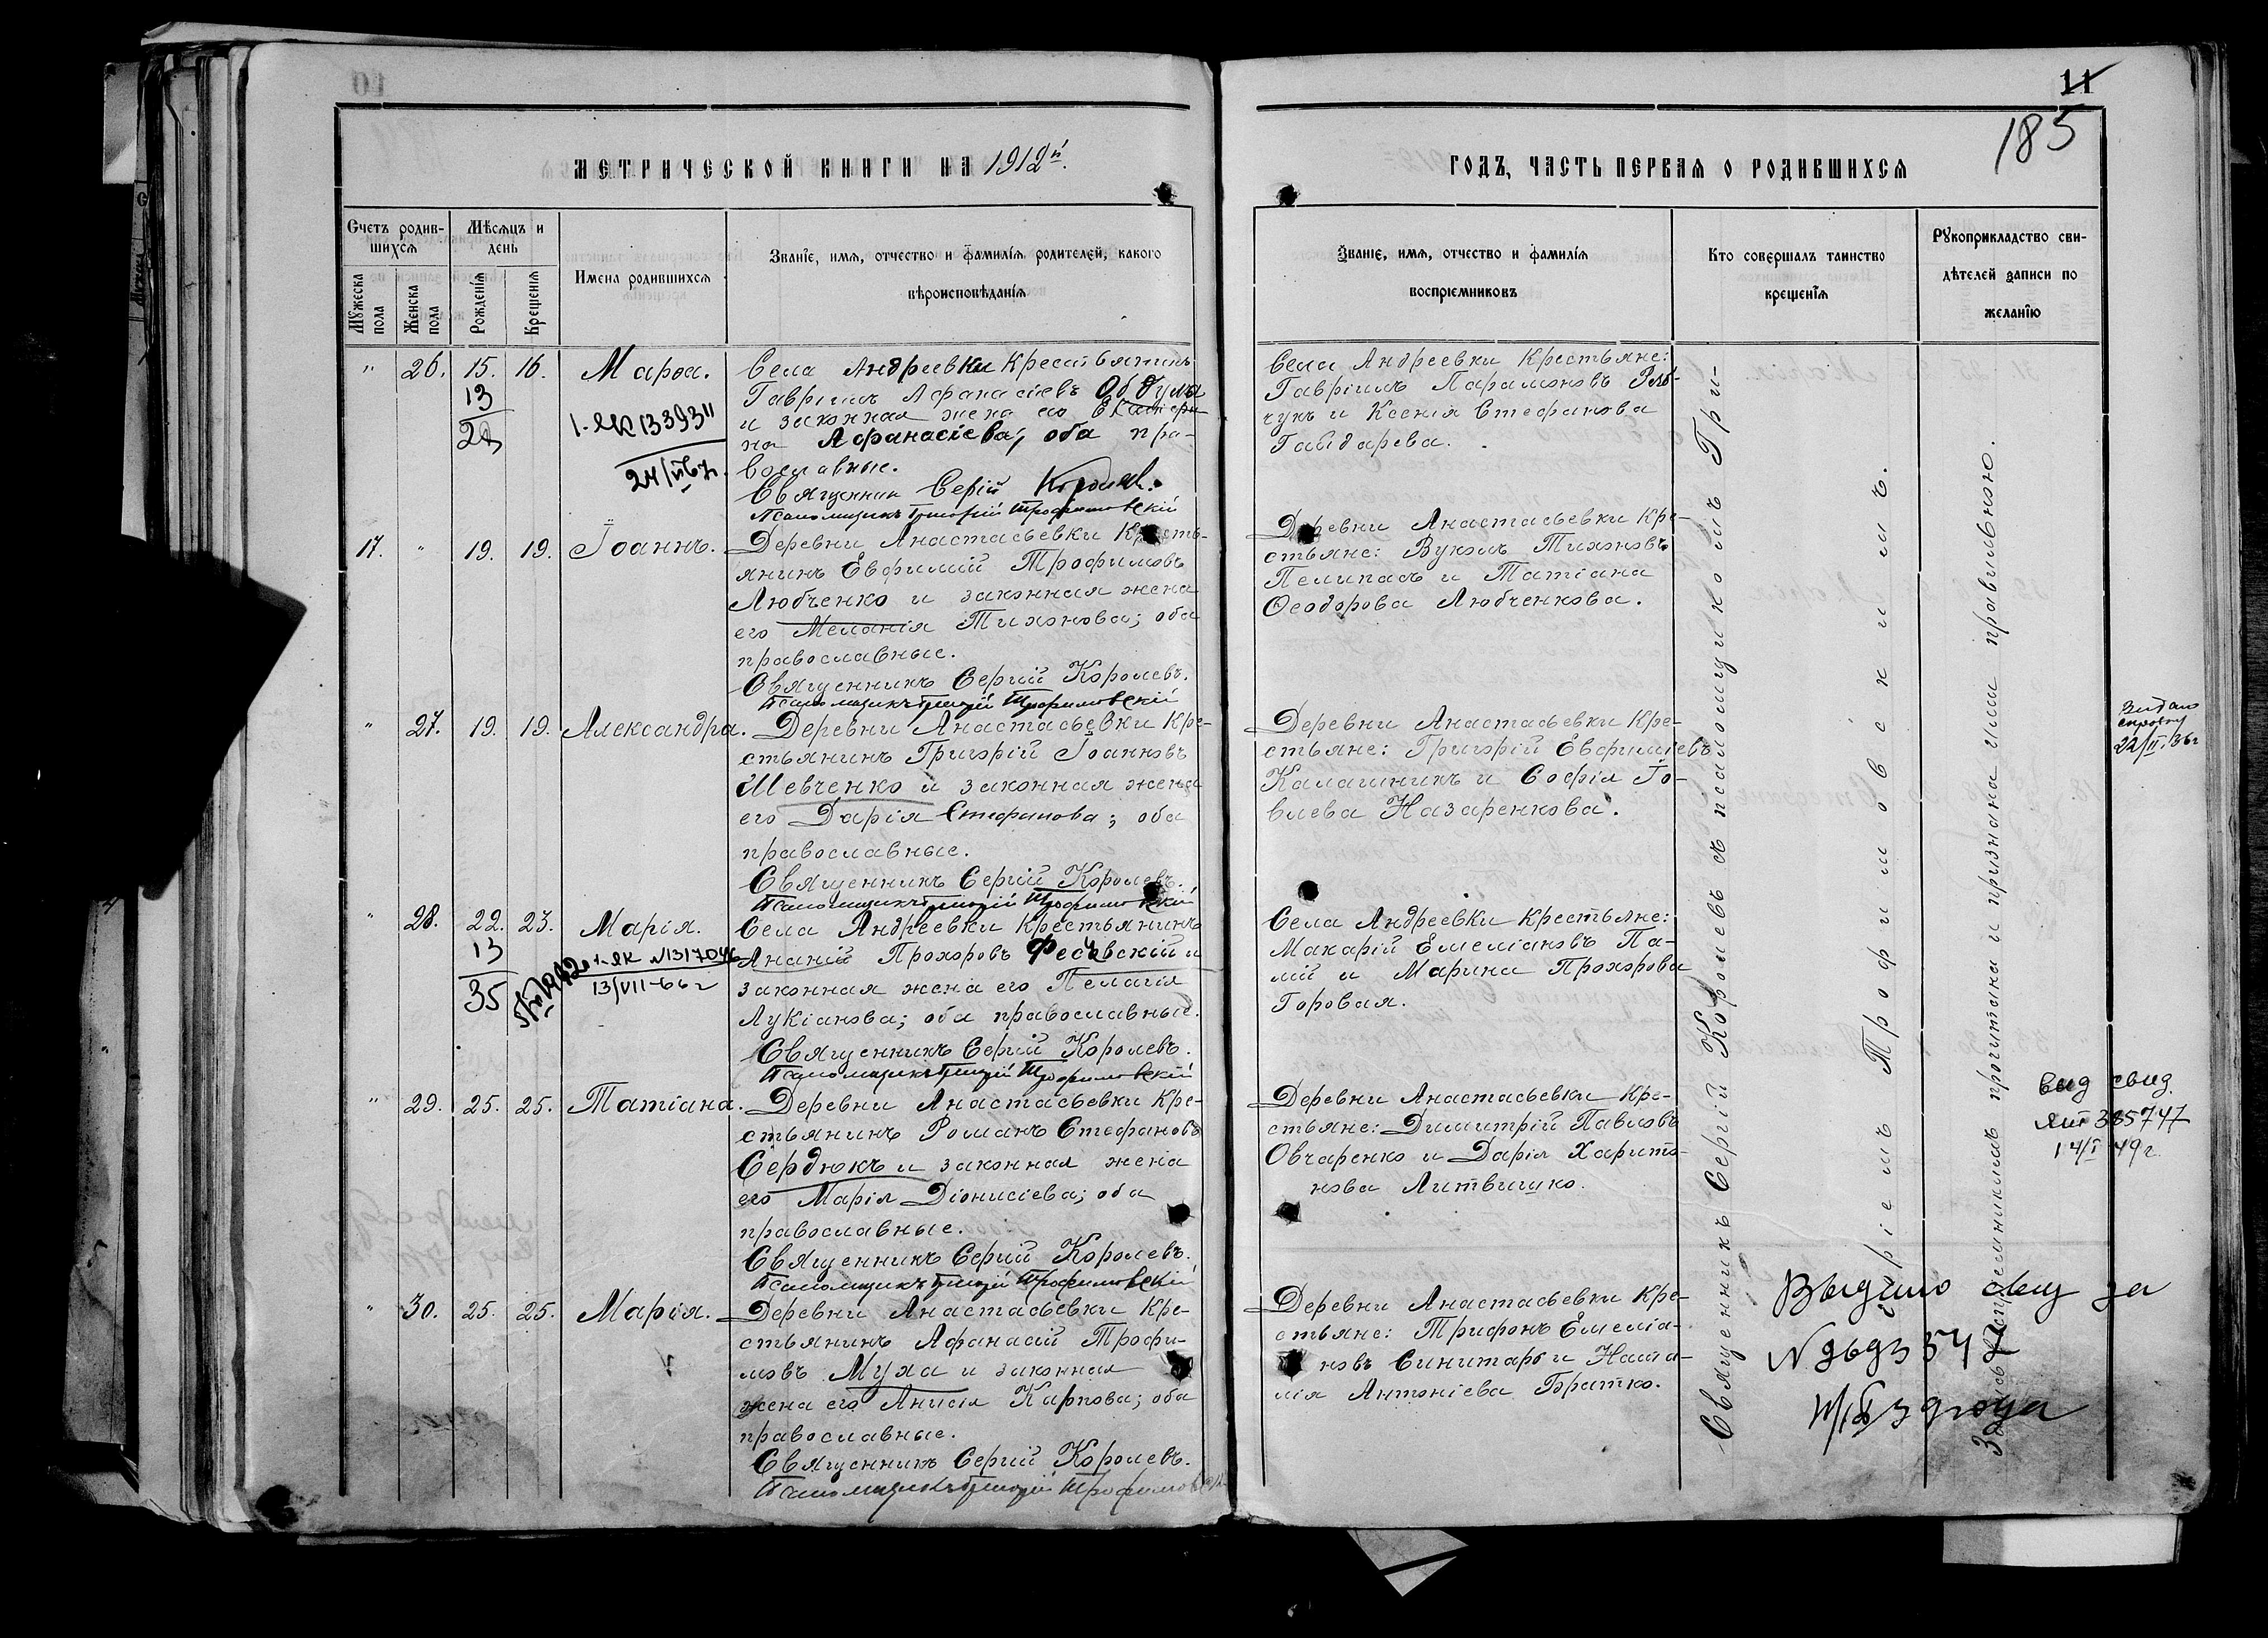 11
185
МЕТРИЧЕСКОЙ КНИГИ НА 1912й.
ГОДЪ, ЧАСТЬ ПЕРВАЯ О РОДИВШИХСЯ
Счетъ родив-
шихся
Мужеска пола
Женска пола
Мѣсяцъ и
день
Рожденія
Крещенія
Имена родившихся
Званіе, имя, отчество и фамилія родителей, какого
вѣроисповѣданія
Званіе, имя, отчество и фамилія
воспріемниковъ
Кто совершалъ таинство
крещенія
Рукоприкладство сви-
дѣтелей записи по
желанію
" 26. 15. 16. Марѳа.
13
1-ЯК 133931
Села Андреевки крестьянинъ
Гавріилъ Афанасіевъ
и законная жена его Екатери-
на Афанасіева; оба пра-
вославные.
Священник Сергій Королевъ.
Псаломщикъ Григорій Трофимовскій
Села Андреевки Крестьяне:
Гавріилъ Парамоновъ Ряб-
чукъ и Ксенія Стефанова
Гайдарева.
17. " 19. 19. Іоаннъ.
Деревни Анастасьевки Кресть-
янинъ Евфимій Трофимовъ
Любченко и законная жена
его Меланія Тихонова; оба
православные.
Священникъ Сергій Королевъ.
Псаломщикъ Григорій Трофимовскій
Деревни Анастасьевки Кре-
стьяне: Вуколъ Тихоновъ
Пелипасъ и Татіана
Ѳеодорова Любченкова.
" 27. 19. 19. Александра.
Деревни Анастасьевки Кре-
стьянинъ Григорій Іоанновъ
Шевченко и законная жена
его Дарія Стефанова; оба
православные.
Священникъ Сергій Королевъ.
Псаломщикъ Григорій Трофимовскій
Деревни Анастасьевки Кре-
стьяне: Григорій Евфиміевъ
Калашникъ и Софія Іо-
влева Назаренкова.
22/II.36г
" 28. 22. 23. Марія.
13
35
1-ЯК №1317046
13/VII-66г
Села Андреевки Крестьянинъ
Ананій Прохоровъ и
законная жена его Пелагія
Лукіанова; оба православные.
Священникъ Сергій Королевъ.
Псаломщикъ Григорій Трофимовскій
Села Андреевки Крестьяне:
Макарій Емеліановъ Па-
лій и Марина Прохорова
Горовая.
" 29. 25. 25. Татіана.
Деревни Анастасьевки Кре-
стьянинъ Романъ Стефановъ
Сердюкъ и законная жена
его Марія Діонисіева; оба
православные.
Священникъ Сергій Королевъ.
Псаломщикъ Григорій Трофимовскій
Деревни Анастасьевки Кре-
стьяне: Димитрій Павловъ
Овчаренко и Дарія Харито-
нова Литвишко.
выд свид.
385747
14/I 49г.
" 30. 25. 25. Марія.
Деревни Анастасьевки Кре-
стьянинъ Афанасій Трофи-
мовъ Муха и законная
жена его Анисія Карпова; оба
православные.
Священникъ Сергій Королевъ.
Псаломщикъ Григорій Трофимовскій
Деревни Анастасьевки Кре-
стьяне: Трифонъ Емеліа-
новъ Синитаръ и Ната-
лія Антоніева Братко.
Священникъ Сергій Королевъ съ псаломщикомъ Гри-
горіемъ Трофимовскимъ.
Запись воспріемникамъ прочитана и признана ими правильною.
Выдано свид за